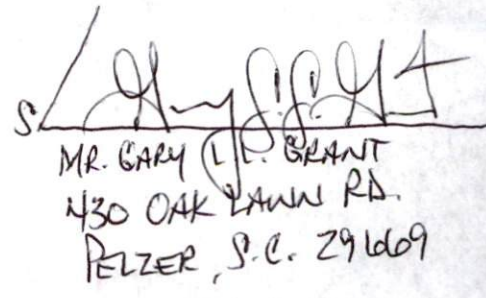 S/ Gary L. L. Grant
MR. GARY L. L. GRANT
430 OAK LAWN RD.
PELZER, S.C. 29669